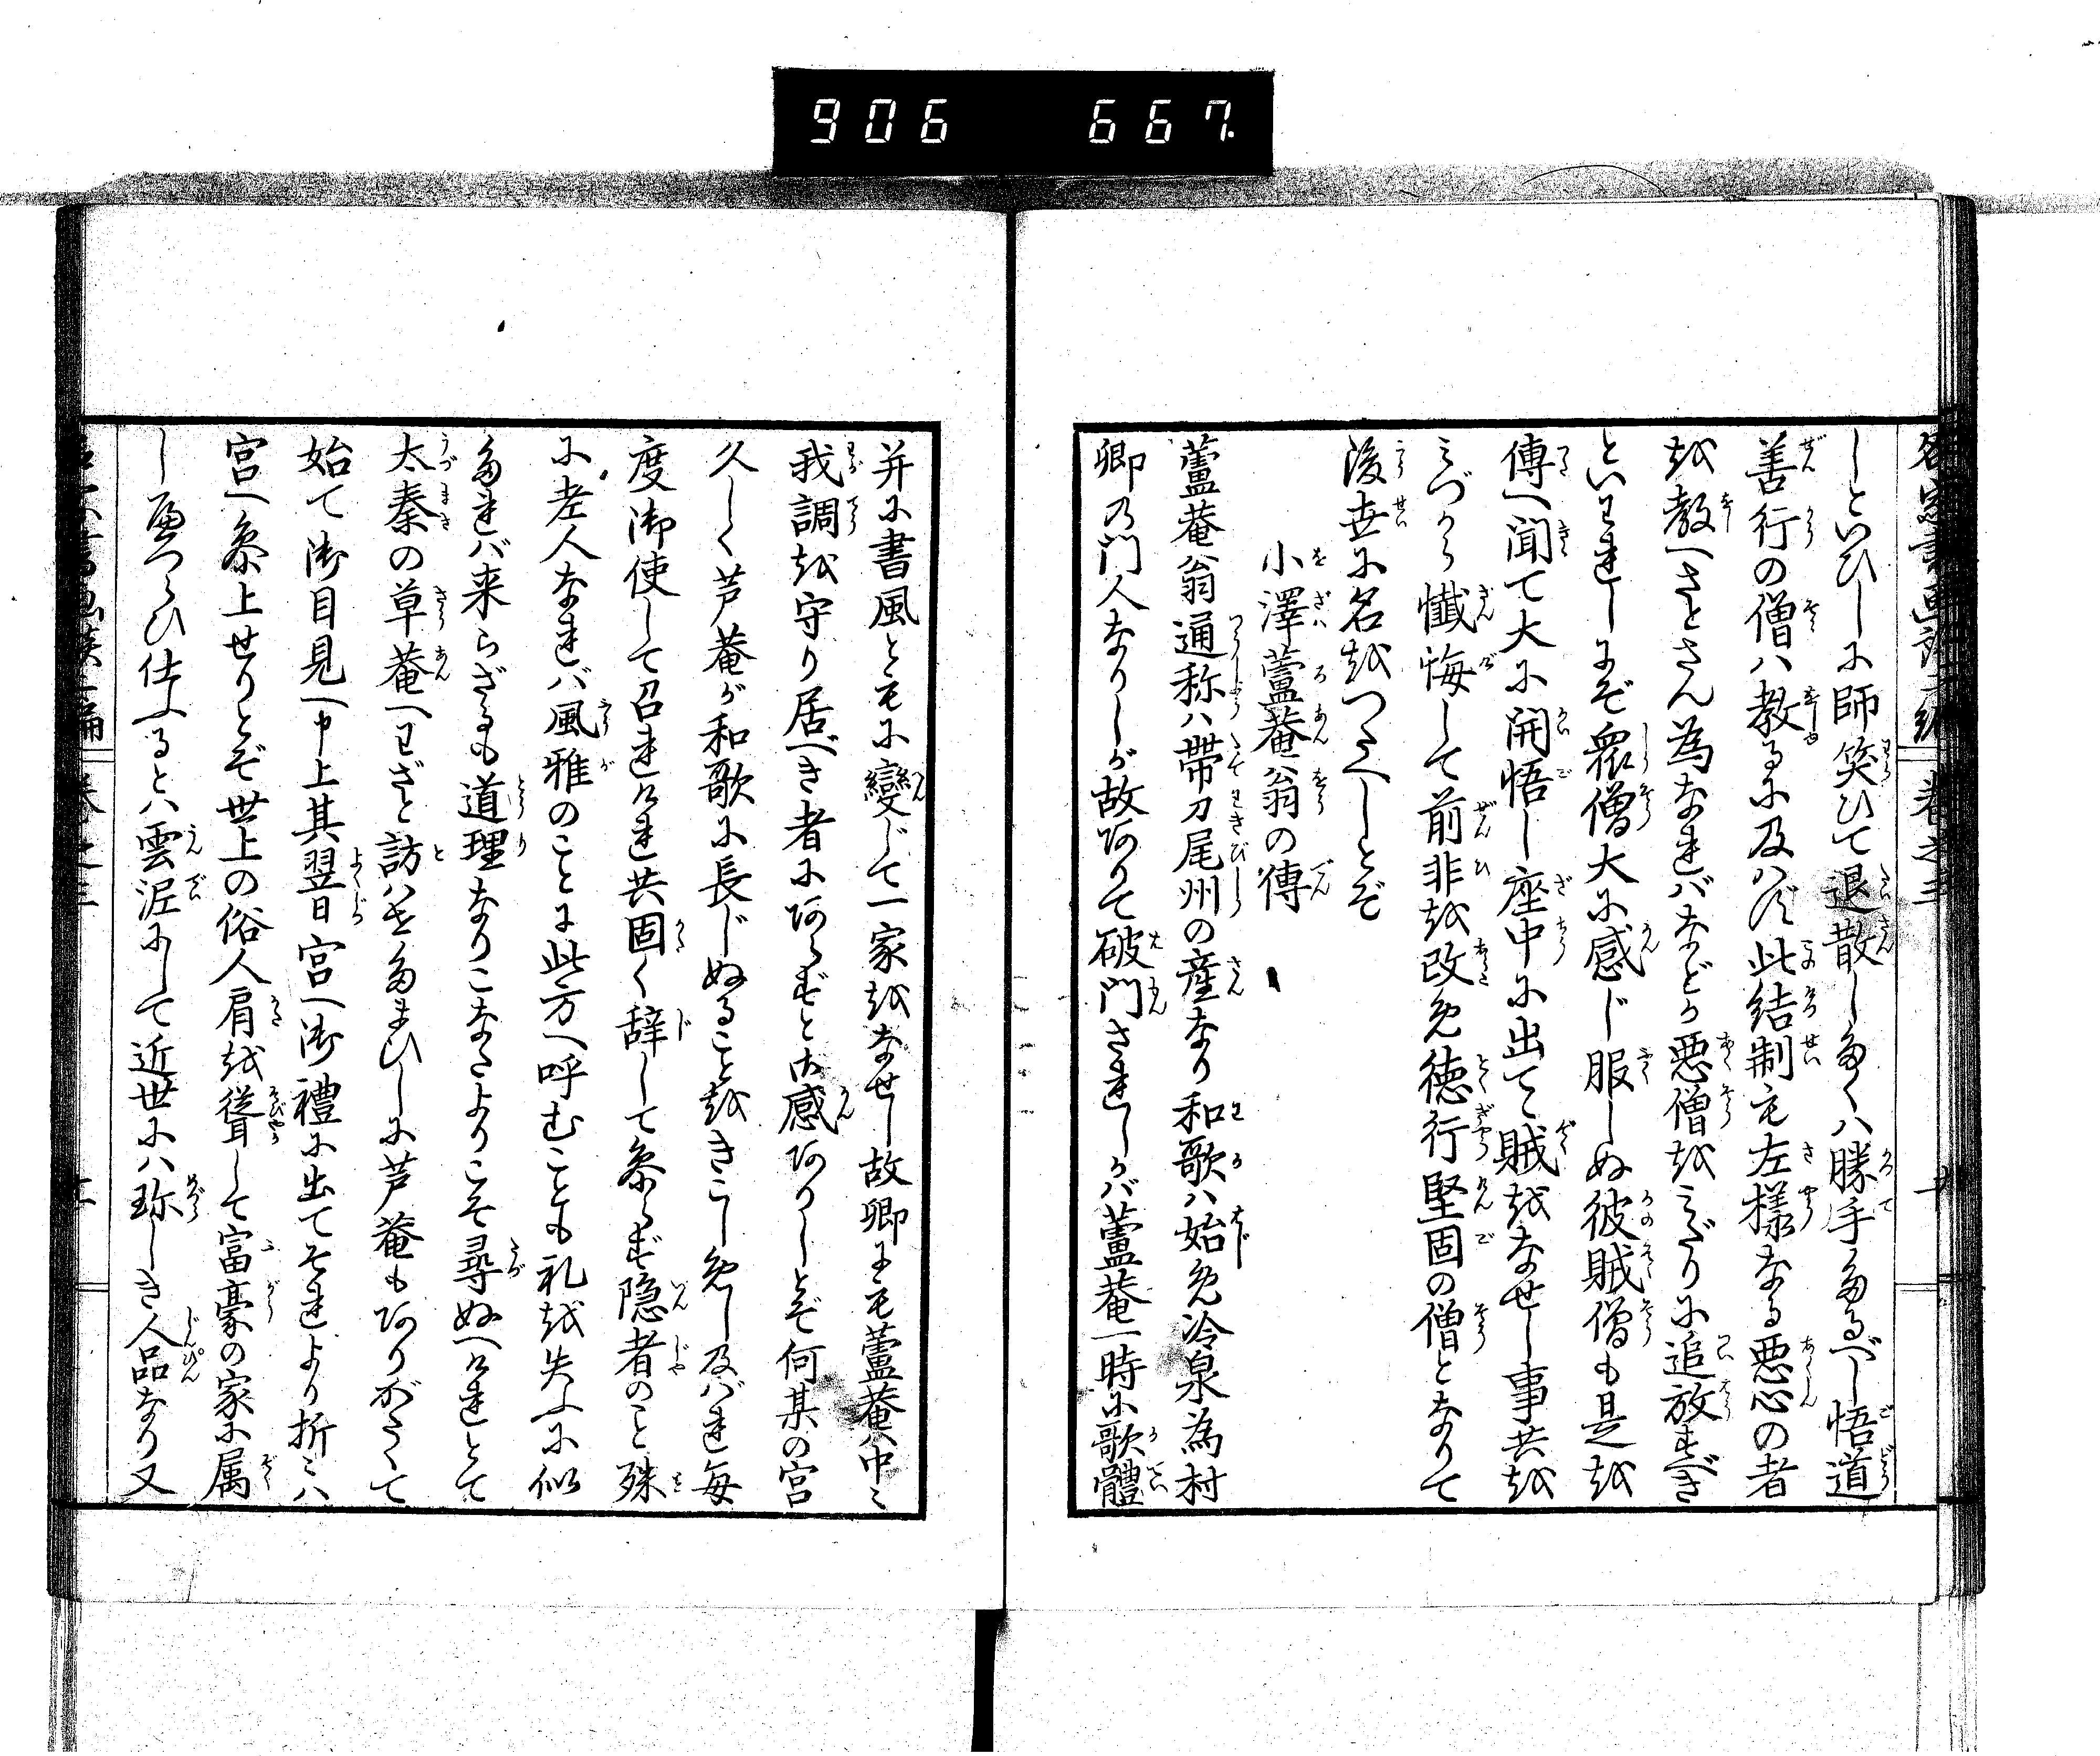 906 667
しといひしに師笑ひて退散したくハ勝手たるべし悟道
善行の僧ハ教るに及ハず此結制も左様なる悪心の者
を教へさとさん為なれバなどか悪僧をみだりに追放すべき
といわれしにぞ衆僧大に感じ服しぬ彼賊僧も是を
傳へ聞て大に開悟し座中に出て賊をなせし事共を
みづから懺悔して前非を改め徳行堅固の僧となりて
後世に名をつたへしとぞ
小澤蘆菴翁の傳
蘆菴翁通称ハ帯刀尾州の産なり和歌ハ始め冷泉為村
卿の門人なりしが故ありて破門されしかバ蘆菴一時に歌體
并に書風ともに變じて一家をなせし故卿にも蘆菴ハ中〻
我調を守り居べき者にあらずと御感ありしとぞ何某の宮
久しく芦菴が和歌に長じぬることをきこし免し及バれ毎
度御使して召れけれ共固く辞して参らず隠者のこと殊
に老人なれバ風雅のことに此方へ呼むことも礼を失ふに似
たれバ来らざるも道理なりこなたよりこそ尋ぬへけれとて
太秦の草菴へわざと訪ハせたまひしに芦菴もありがたくて
始て御目見へ申上其翌日宮へ御禮に出てそれより折〻ハ
宮へ参上せりとぞ世上の俗人肩を聳して富豪の家に属
しへつらひ仕ふるとハ雲泥にして近世にハ珎しき人品なり又